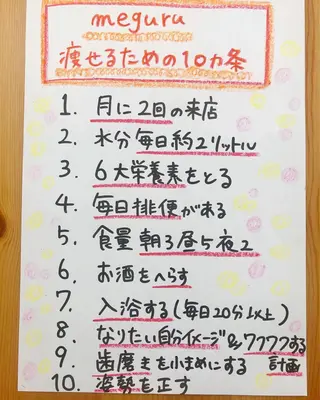 meguru
痩せるための10カ条
1. 月に2回の来店
2. 水分毎日約2リットル
3. 6大栄養素をとる
4. 毎日排便がある
5. 食量朝3昼5夜2
6. お酒をへらす
7. 入浴する(毎日20分以上)
8. なりたい自分イメージ&ワクワクする
計画
9. 歯磨きを小まめにする
10. 姿勢を正す